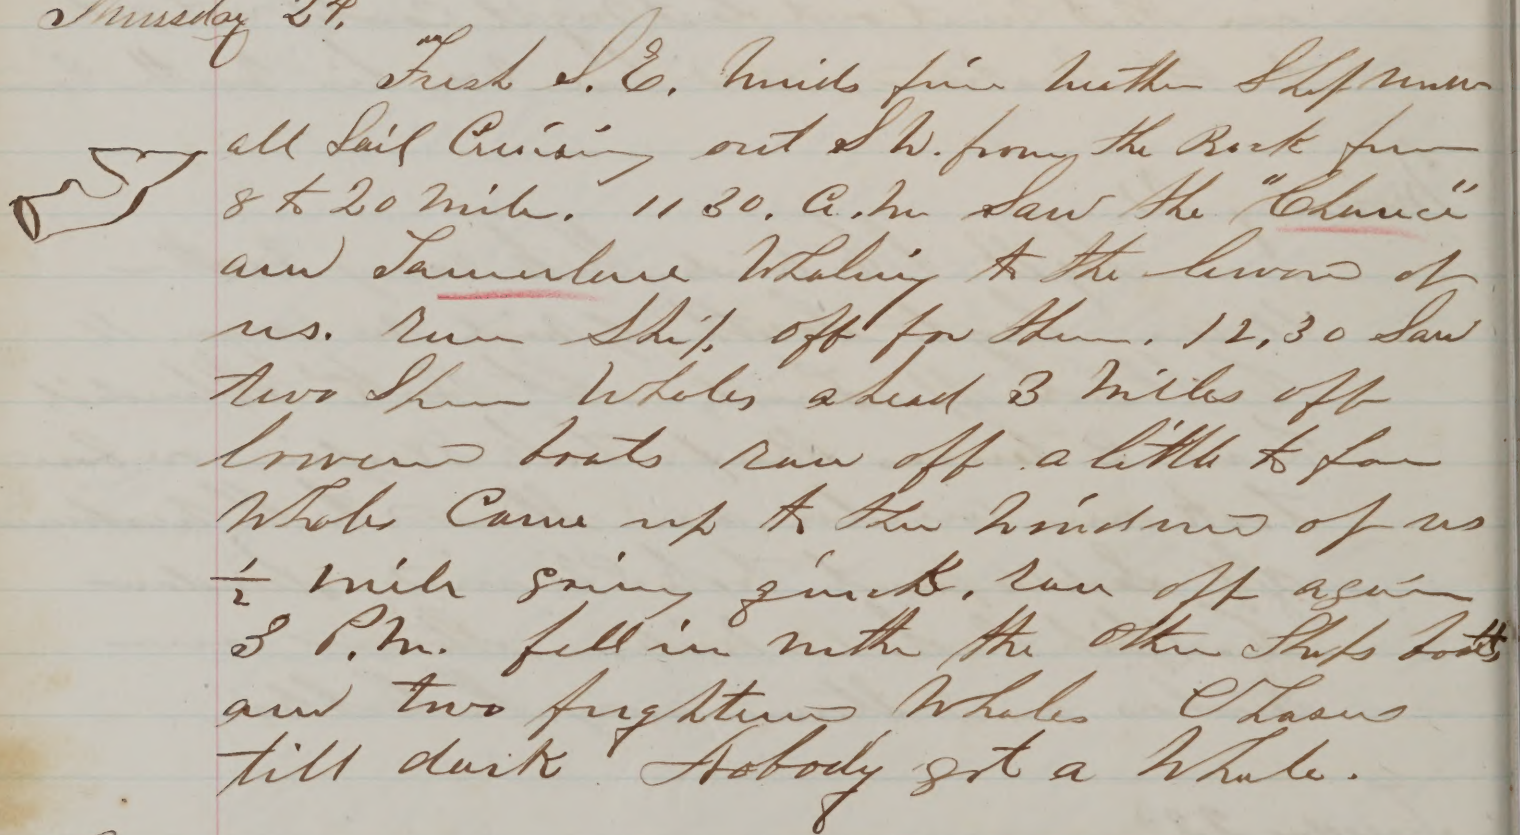 Thursday 24.
Fresh S. E. Winds fine weather Ship under
all Sail Cruising out S W. from the Rock from
8 to 20 mile. 11 30. A.M Saw the "Chance"
and Tamerlane Whaling to the leward of
us. run Ship off for them. 12,30 Saw
two Sperm Whales ahead 3 miles off
lowered boats run off a little to far
Whales Came up to the windward of us
1/2 mile going quick. run off again
3 P.M. fell in with the other Ships boats
and two frightened Whales Chased
till dark Nobody got a Whale.